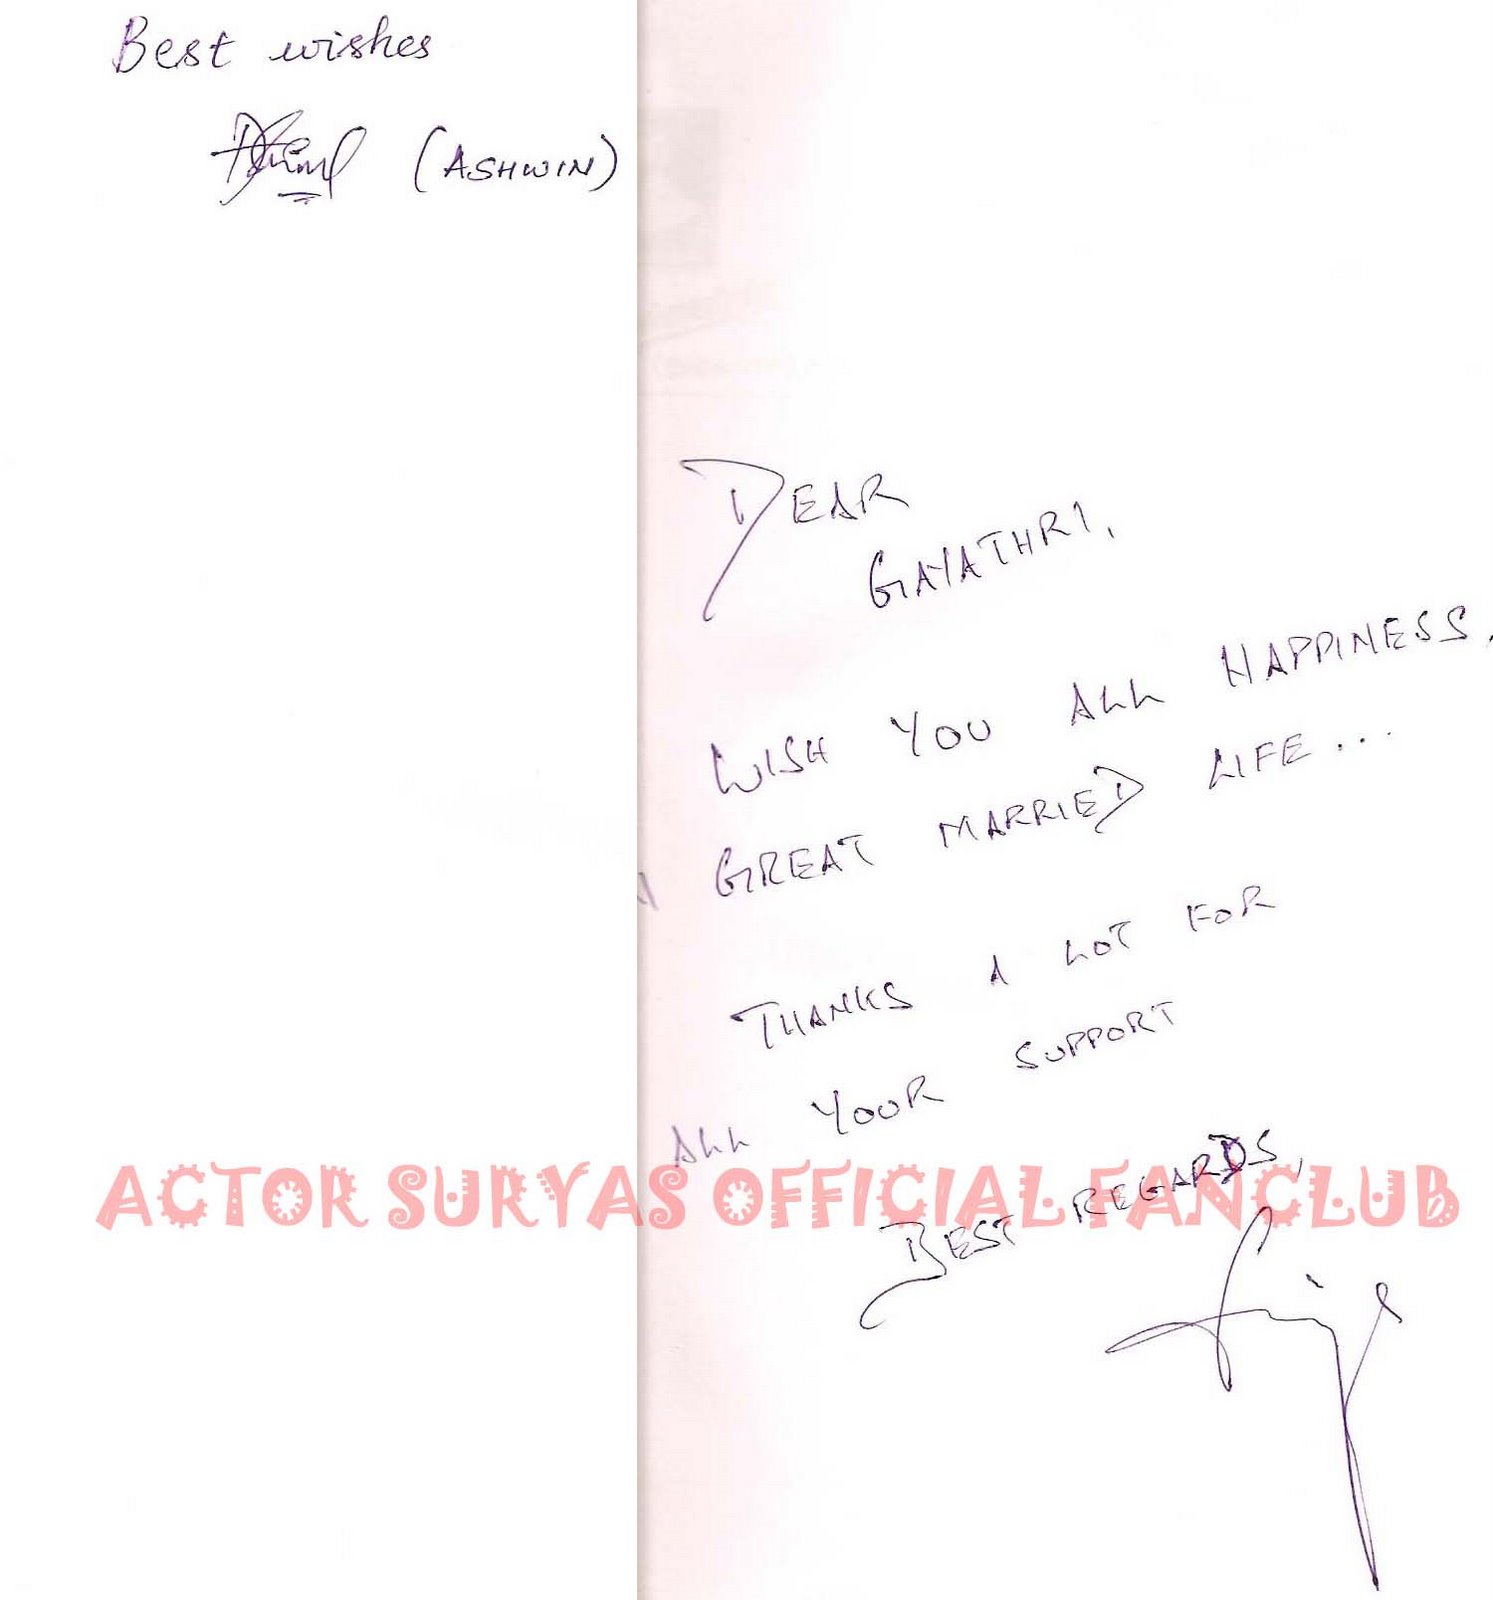 Best wishes
(ASHWIN)
DEAR
GAYATHRI,
WISH YOU ALL HAPPINESS,
GREAT MARRIED LIFE...
THANKS A LOT FOR
ALL YOUR SUPPORT
BEST REGARDS,
ACTOR SURYAS OFFICIAL FANCLUB